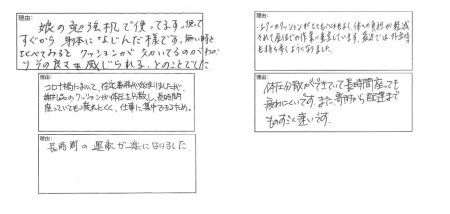 理由:
娘の勉強机で使ってます。使って
すぐから身体になじんだ様です。無い時と
比べてみると クッションが支いてるのがわか
りその良さを感じられる。とのことでした
理由:
コロナ禍において、在宅勤務が始まりましたが、
クッションが体圧を分散し、長時間
座っていても疲れにくく、仕事に集中できるため。
理由:
長時間の運転が楽になりました。
理由:
クッションがとても心地よく、体への負担が軽減
されて座っての作業に重宝しています。最近では、外出時
も持ち歩くようになりました。
理由:
体圧分散ができていて長時間座っても
疲れにくいです。また、寄附から配達まで
ものすごく速いです。